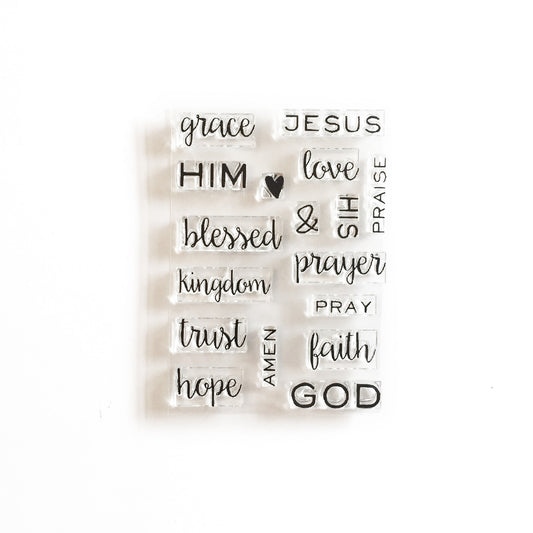 grace
JESUS
HIM
love
PRAISE
&
HIS
blessed
prayer
kingdom
PRAY
trust
AMEN
faith
hope
GOD